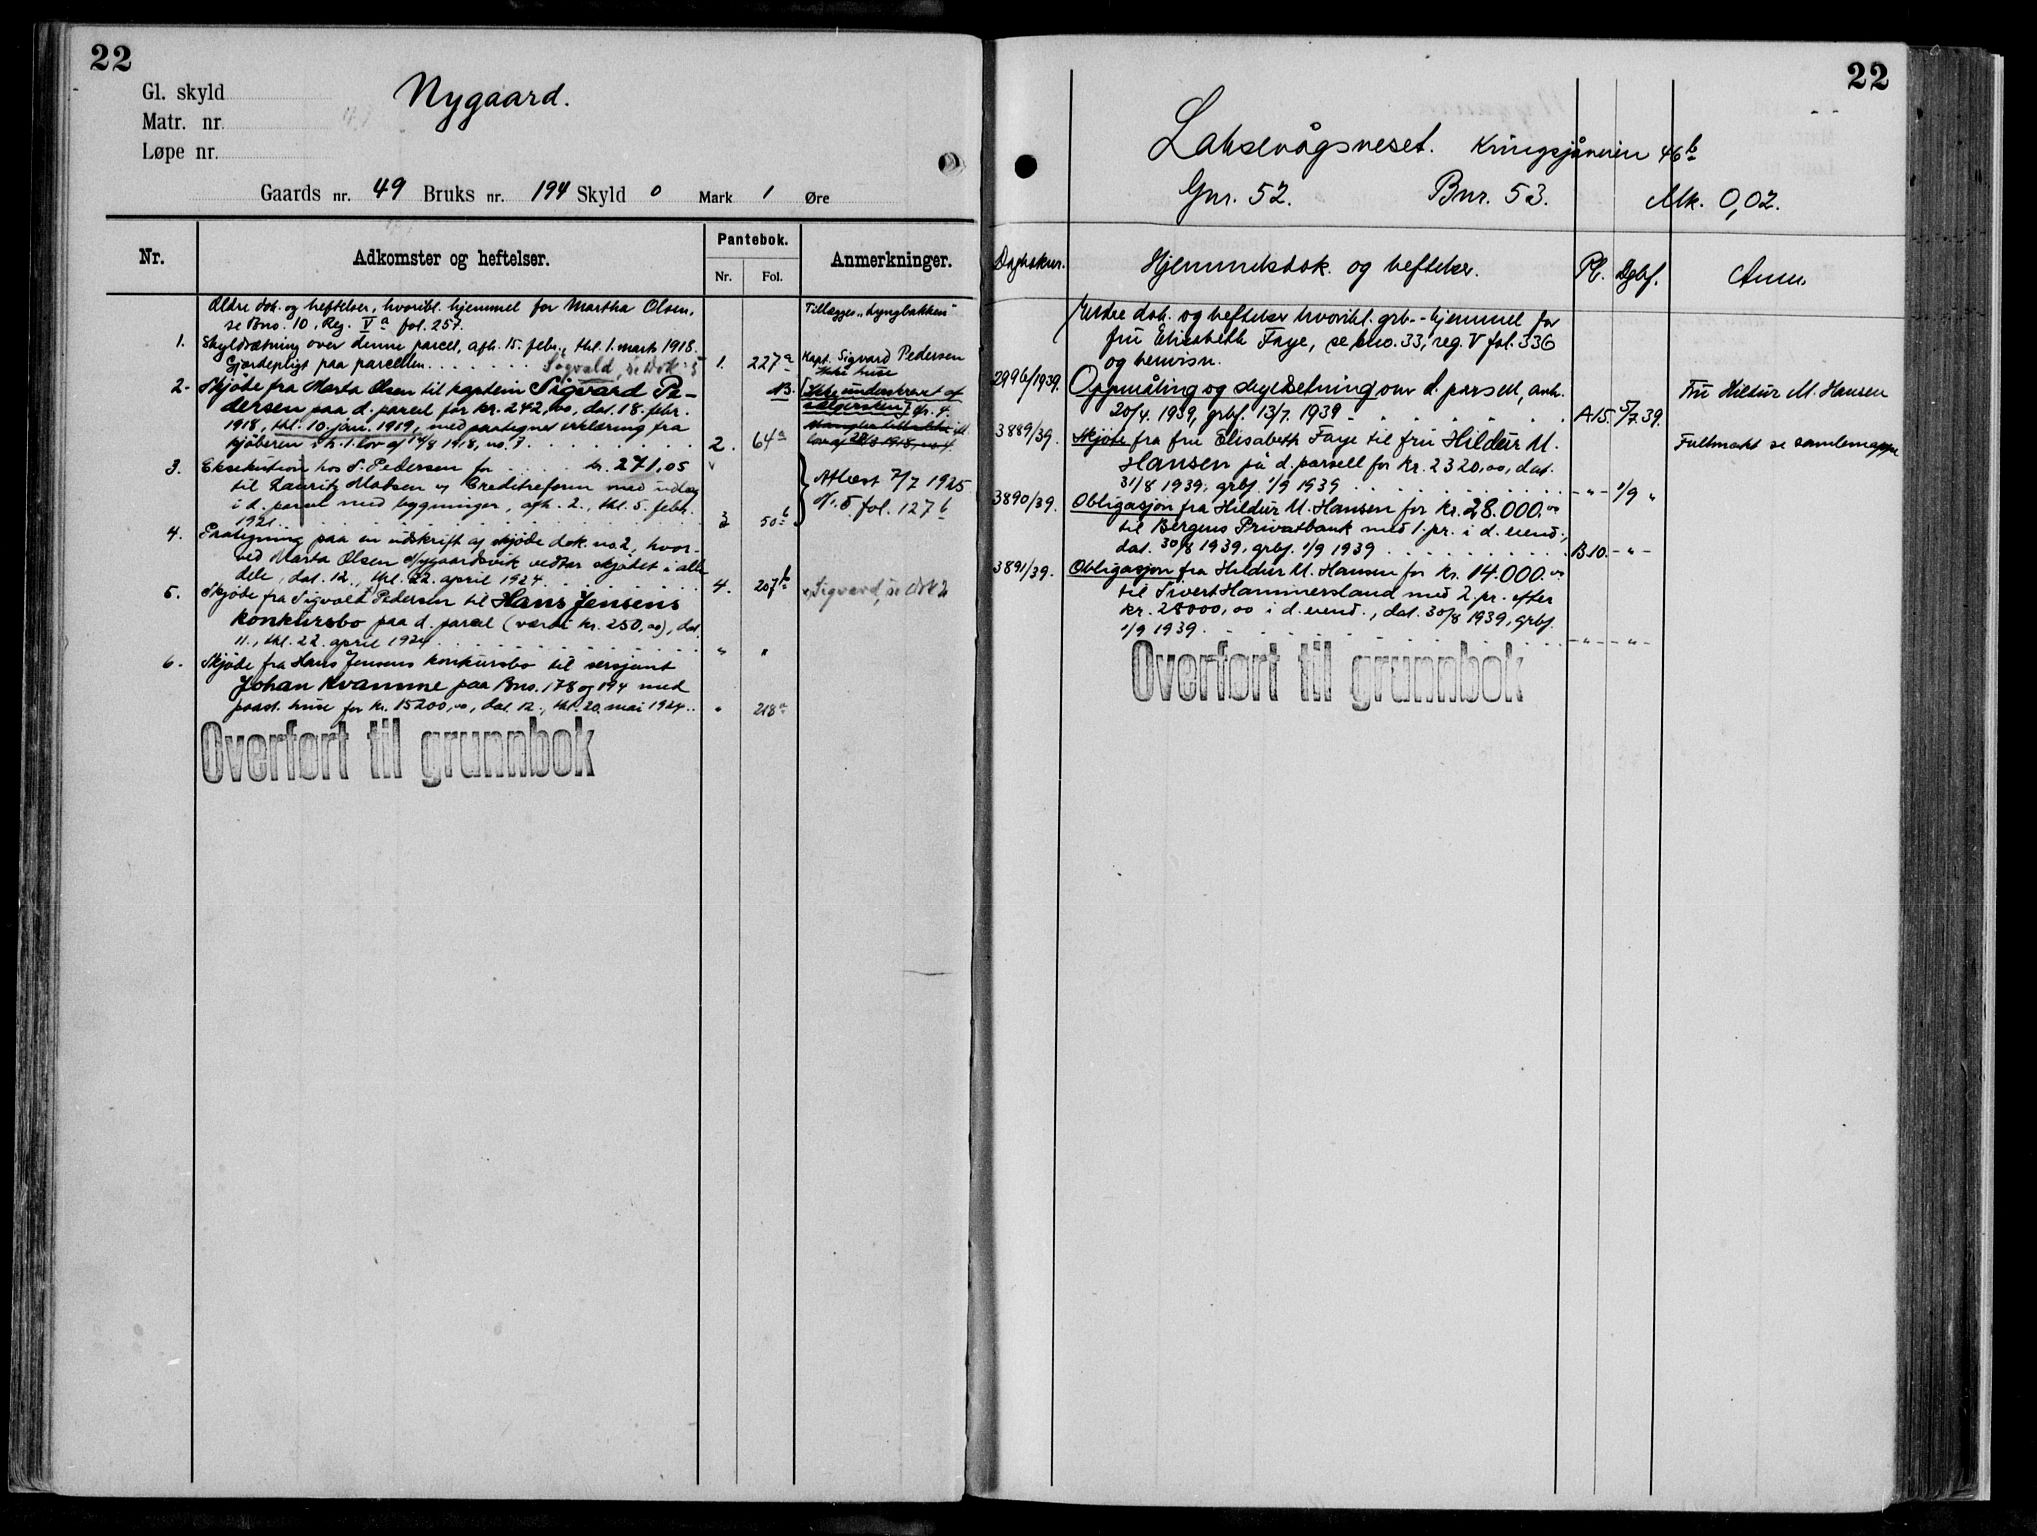 22
Gl. skyld
Matr. nr.
Løpe nr.
Nygaard.
Gaards nr. 49 Bruks nr. 194 Skyld 0 Mark 1 Øre
Nr.
Adkomster og heftelser.
Pantebok.
Nr.
Fol.
Anmerkninger.
Ældre dok. og heftelser, hvoribl. hjemmel for Martha Olsen,
se Bno. 10, Reg. V a fol. 257.
Tillægges "Lyngbakken"
1. Skyldsætning over denne parcel, afh. 15. febr., thl. 1. marts 1918.
Gjærdepligt paa parcellen Sigvald, se dok. 5
1. 227 a
Kapt. Sigvard Pedersen
Ikke huse
2. Skjøde fra Marta Olsen til kaptein Sigvard Pe-
dersen paa d. parcel for kr. 242,00, dat. 18. febr.
1918, thl. 10. jan. 1919, med paategnet erklæring fra
kjøberen i h. t. lov af 14/8 1918, no. 7.
2. 64 a
NB. Ikke underskrevet af
sælgersken, jfr. 4.
3. Eksekution hos S. Pedersen for kr. 271,05
til Lauritz Madsen v/ Creditreform med udlæg
i d. parcel med bygninger, afh. 2., thl. 5. febr.
1921
3 50 b
Avlæst 7/7 1925
N. 5 fol. 127 b
4. Paategning paa en udskrift af skjøde dok. no. 2, hvor-
ved Marta Olsen Nygaardsvik vedtar skjødet i alle
dele, dat. 12., thl. 22. april 1924.
4. 207 b
Sigvard, se dok 2
5. Skjøde fra Sigvald Pedersen til Hans Jensens
konkursbo paa d. parcel (værdi kr. 250,00), dat.
11., thl. 22. april 1924
" "
6. Skjøde fra Hans Jensens konkursbo til sersjant
Johan Kvamme paa Bno. 178 og 194 med
paast. huse for kr. 15200,00, dat. 12., thl. 20. mai 1924.
" 218 a
Overført til grunnbok
22
Laksevågsneset. Kringsjåveien 46 b
Gnr. 52. Bnr. 53. Mk. 0,02.
Dagboknr.
Hjemmelsdok. og heftelser.
Pb.
Dgbf.
Anm.
Eldre dok. og heftelser hvoribl. grb.-hjemmel for
fru Elisabeth Faye, se bno. 33, reg. V fol. 336
og henvisn.
2996/1939. Oppmåling og skyldsetning over d. parsell, avh.
20/4. 1939, grbf. 13/7. 1939
A 15. 5/7.39.
Fru Hildur M. Hansen
3889/39. Skjøte fra fru Elisabeth Faye til fru Hildur M.
Hansen på d. parsell for kr. 2320,00, dat.
31/8 1939, grbf. 1/9 1939
-"- 1/9 "
Fullmakt se samlemappe
3890/39. Obligasjon fra Hildur M. Hansen for kr. 28.000.00
til Bergens Privatbank med 1. pr. i d. eiend.,
dat. 30/8 1939, grbf. 1/9 1939
B 10. -"-
3891/39. Obligasjon fra Hildur M. Hansen for kr. 14.000.00
til Sivert Hammersland med 2. pr. efter
kr. 28000,00 i d. eiend., dat. 30/8 1939, grbf.
1/9 1939.
-"- -"-
Overført til grunnbok